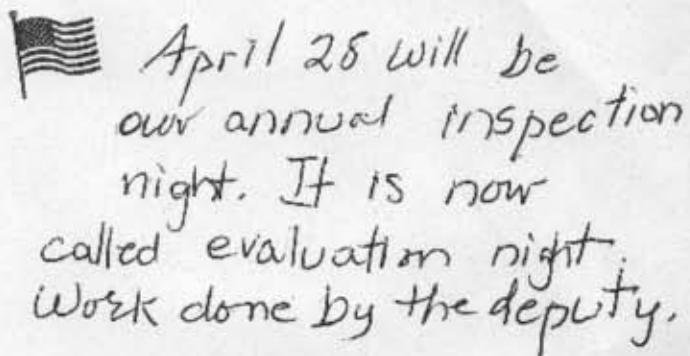 April 28 will be
our annual inspection
night. It is now
called evaluation night.
Work done by the deputy.